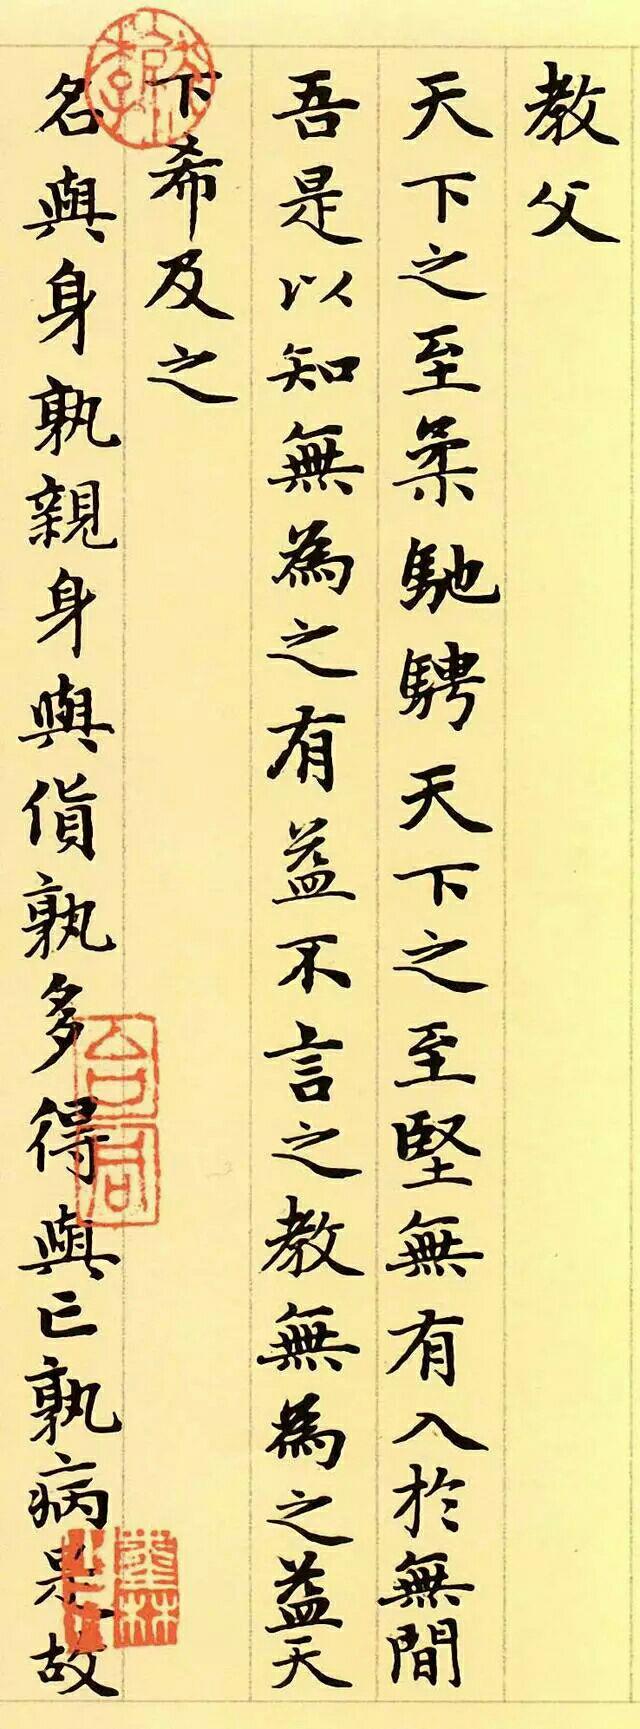 教父
天下之至柔馳騁天下之至堅無有入於無間
吾是以知無為之有益不言之教無為之益天
下希及之
名與身孰親身與貨孰多得與亡孰病是故